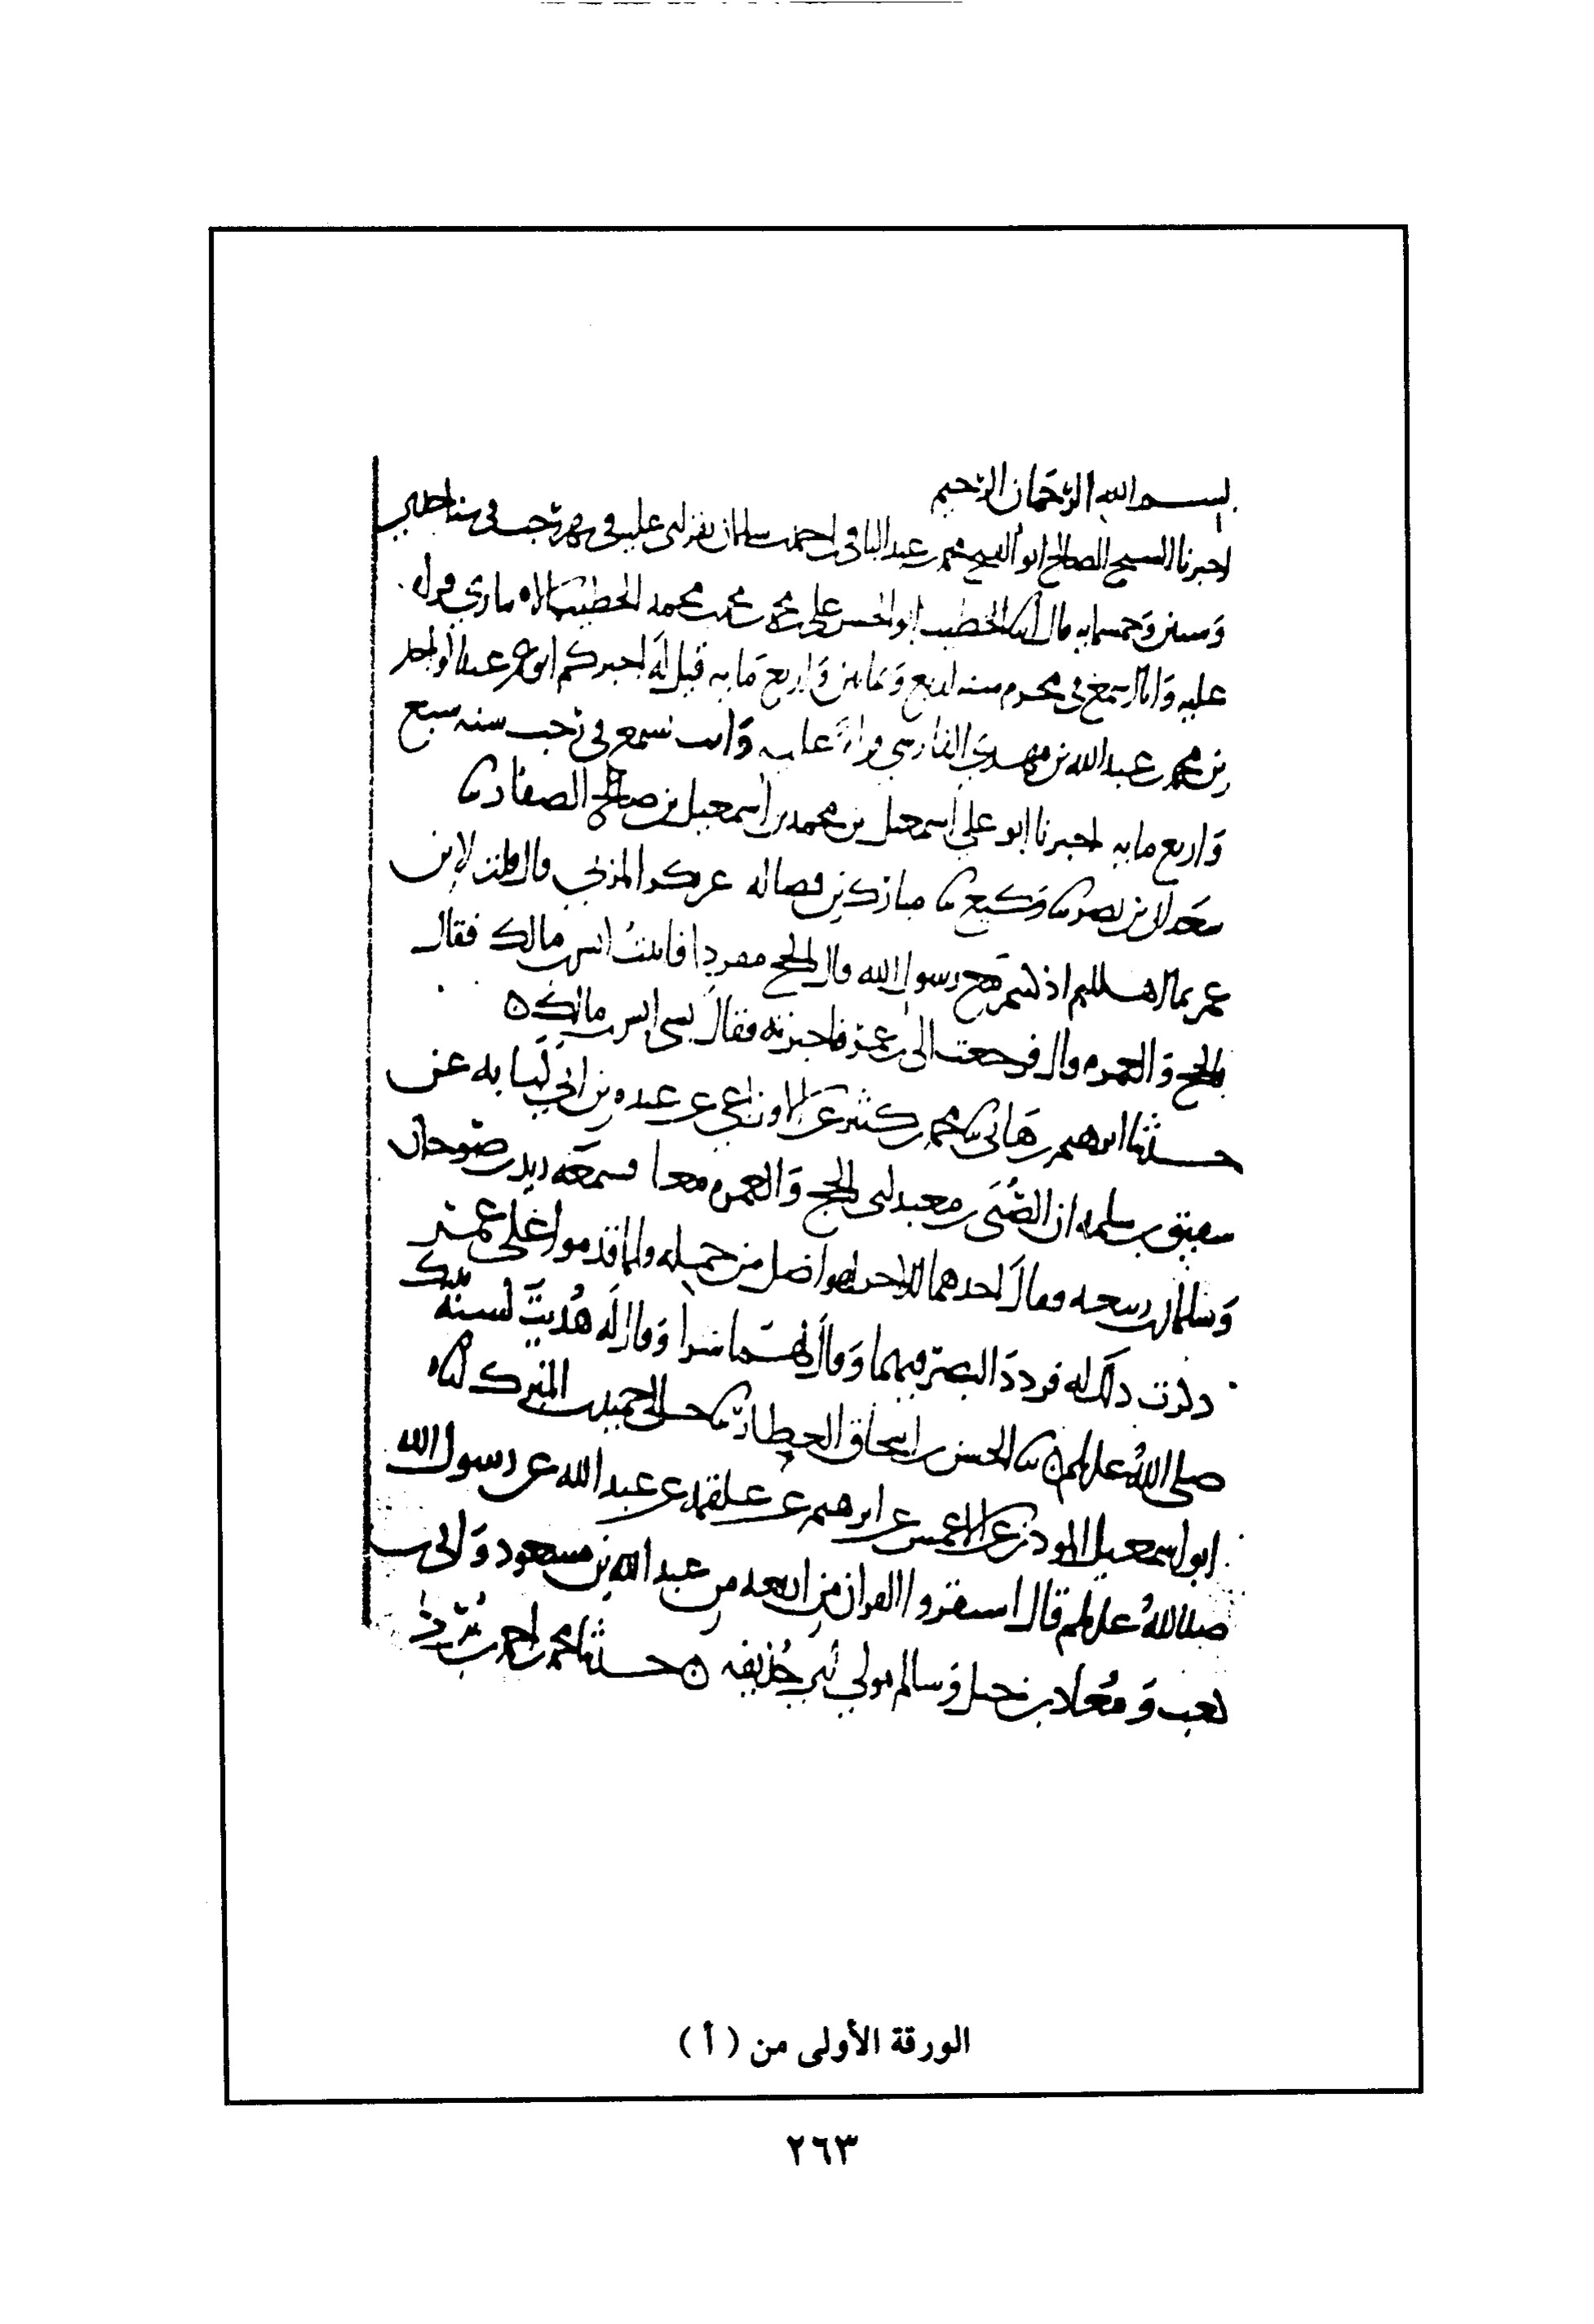 بسم الله الرحمان الرحيم
اخبرنا الشيخ الصالح ابو الفتح محمد بن عبد الباقي بن احمد بن سلمان بقراتي عليه في رجب في سنة
وستين وخمسمايه قال الخطيب ابو الحسن علي بن محمد بن محمد الخطيب الانباري قراه
عليه وانا اسمع في محرم سنه اربع وثمانين واربع مايه قيل له اخبركم ابو عمر عبد الواحد
بن محمد بن عبد الله بن مهدي الفارسي قراة عليه وانت تسمع في رجب سنه سبع
واربع مايه اخبرنا ابو علي اسمعيل بن محمد بن اسمعيل بن صالح الصفار نا
سعدان بن نصر نا وكيع نا مبارك بن فضاله عن بكر المزني قال قلت لابن
عمر اهللتم اذ مع رسول الله قال بالحج مفردا فاتيت انس بن مالك فقال
بالحج والعمره قال فرجعت الى ابن عمر فاخبرته فقال نسي انس بن مالك
حدثنا ابرهيم بن هاني نا محمد بن كثير عن الاوزاعي عن عبده بن ابي لبابه عن
شقيق بن سلمه ان الصبي بن معبد لبى بالحج والعمره معا فسمعه زيد بن صوحان
وسلمان بن ربيعه فقال احدهما للاخر لهو اضل من جمله فلما قدموا على عمر
ذكرت ذلك له فردد البصر فيهما وقال شرا وقال له هديت لسنة نبيك
صلى الله عليه وسلم نا الحسن بن اسحاق العطار نا
ابو اسمعيل المودب عن الاعمش عن ابرهيم عن علقمه عن عبد الله عن رسول الله
صلى الله عليه وسلم قال استقروا القران من اربعه من عبد الله بن مسعود وابي بن
كعب ومعاذ بن جبل وسالم مولى ابي حذيفه حدثنا محمد بن احمد بن برد
الورقة الأولى من ( أ )
٢٦٣